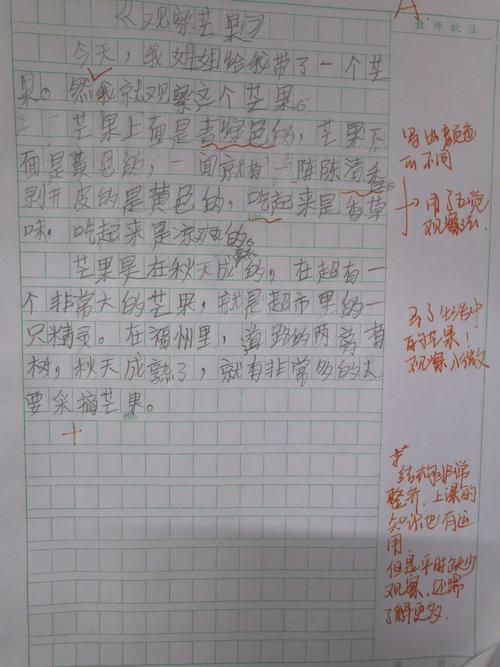 《观察芒果》
A
教师批注
今天，我姐姐给我带了一个芒
果。然我就观察这个芒果。
芒果上面是青绿色的，芒果下
面是黄色的，一闻就有一阵陈清香。
剥开皮的是黄色的，吃起来是香草
味，吃起来是凉爽的。
芒果是在秋天成的，在超有一
个非常大的芒果，就是超市里的一
只精灵。在福州里，道路的两旁有
树，秋天成熟了，就有非常多的人
要采摘芒果。
写出颜色
的不同
用了五觉
观察法.
写了生活中
有的芒果！
观察入微
结构非常
整齐.上课的
知识也有运
用.
但是平时缺少
观察.还需
了解更多.